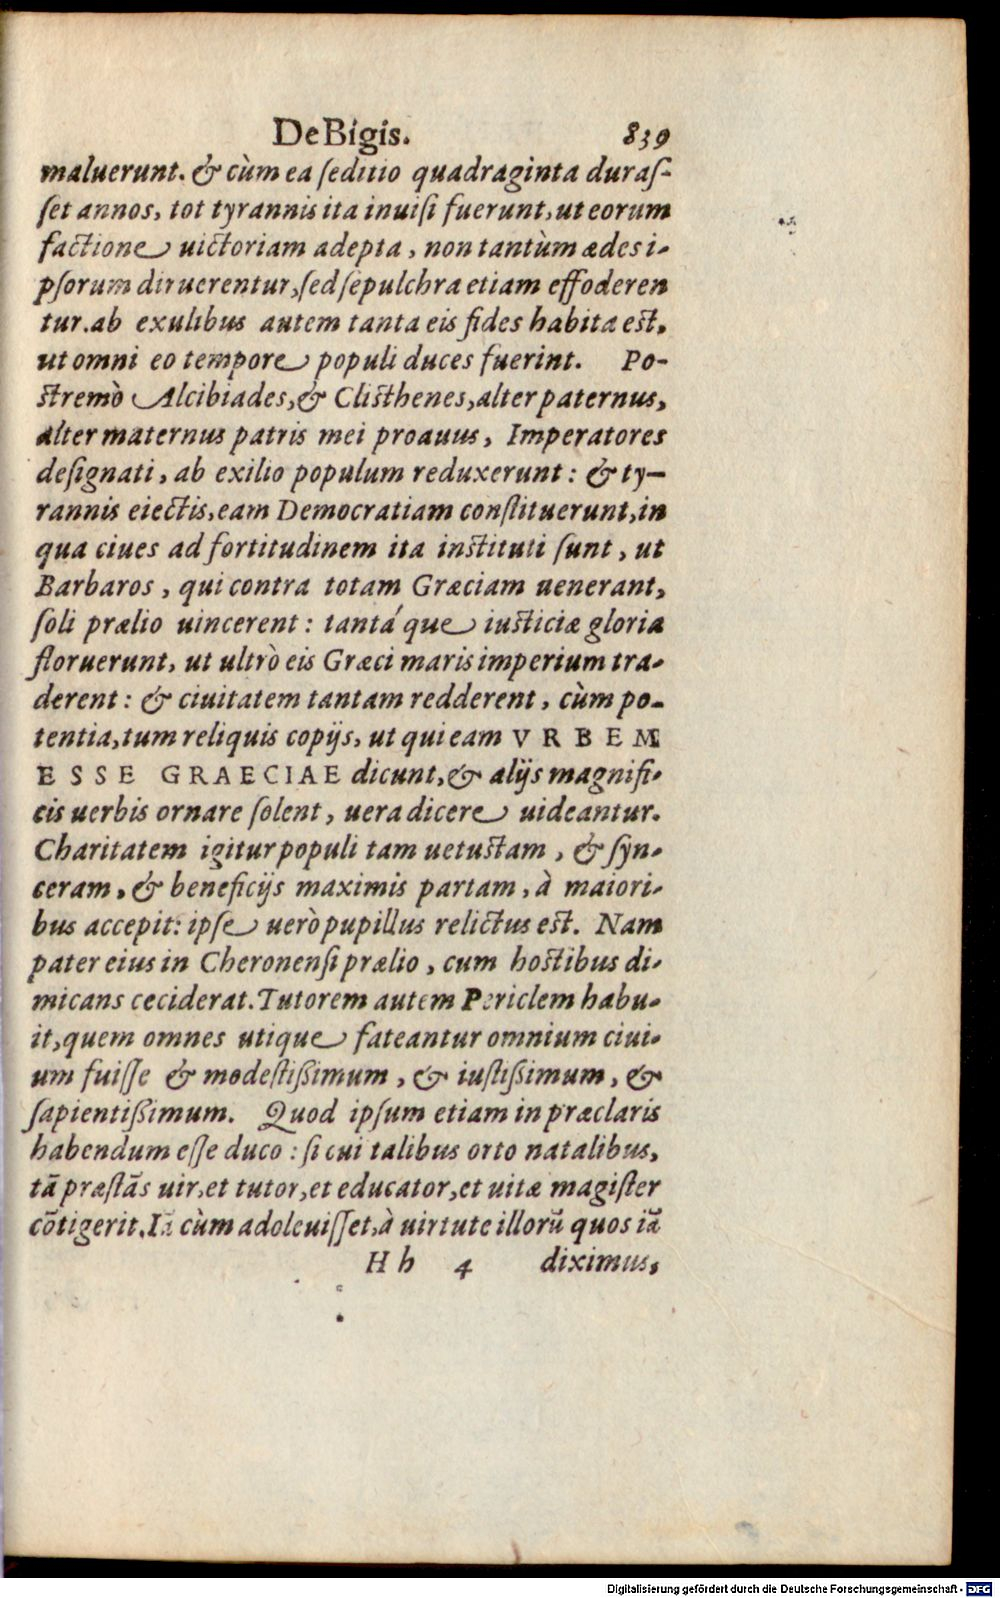 De Bigis. 839
maluerunt. & cùm ea ſeditio quadraginta duraſ-
ſet annos, tot tyrannis ita inuiſi fuerunt, ut eorum
factione uictoriam adepta, non tantùm ædes i-
pſorum diruerentur, ſed ſepulchra etiam effoderen
tur. ab exulibus autem tanta eis fides habita est,
ut omni eo tempore populi duces fuerint. Po-
stremò Alcibiades, & Clisthenes, alter paternus,
alter maternus patris mei proauus, Imperatores
deſignati, ab exilio populum reduxerunt: & ty-
rannis eiectis, eam Democratiam conſtituerunt, in
qua ciues ad fortitudinem ita instituti ſunt, ut
Barbaros, qui contra totam Græciam uenerant,
ſoli prælio uincerent: tantá que iusticiæ gloria
floruerunt, ut ultrò eis Græci maris imperium tra-
derent: & ciuitatem tantam redderent, cùm po-
tentia, tum reliquis copijs, ut qui eam VRBEM
ESSE GRAECIAE dicunt, & alijs magnifi-
cis uerbis ornare ſolent, uera dicere uideantur.
Charitatem igitur populi tam uetustam, & ſyn-
ceram, & beneficijs maximis partam, à maiori-
bus accepit: ipſe uerò pupillus relictus est. Nam
pater eius in Cheronenſi prælio, cum hostibus di-
micans ceciderat. Tutorem autem Periclem habu-
it, quem omnes utique fateantur omnium ciui-
um fuiſſe & modeſtißimum, & iuſtißimum, &
ſapientißimum. Quod ipſum etiam in præclaris
habendum eſſe duco: ſi cui talibus orto natalibus,
tā præſtās uir, et tutor, et educator, et uitæ magiſter
cōtigerit. Iā cùm adoleuiſſet, à uirtute illorū quos iā
Hh 4 diximus,
Digitalisierung gefördert durch die Deutsche Forschungsgemeinschaft - DFG